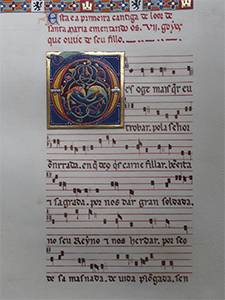 Esta e a primeira cantiga de loor de
santa maria ementando os .VII. goyos
que ouue de seu fillo.
Des oge mais q̃r eu
trobar, pola señor
onrrada, en q̃ deꝯ q̃s carne fillar, bẽeita
⁊ sagrada, por nos dar gran soldada,
no seu Reyno ⁊ nos herdar, por seꝯ
de sa masnada, de vida plõgada, sen